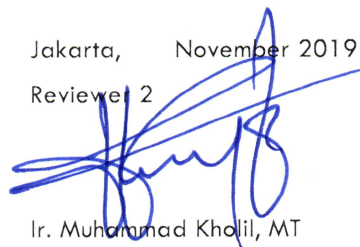 Jakarta, November 2019
Reviewer 2
Ir. Muhammad Kholil, MT